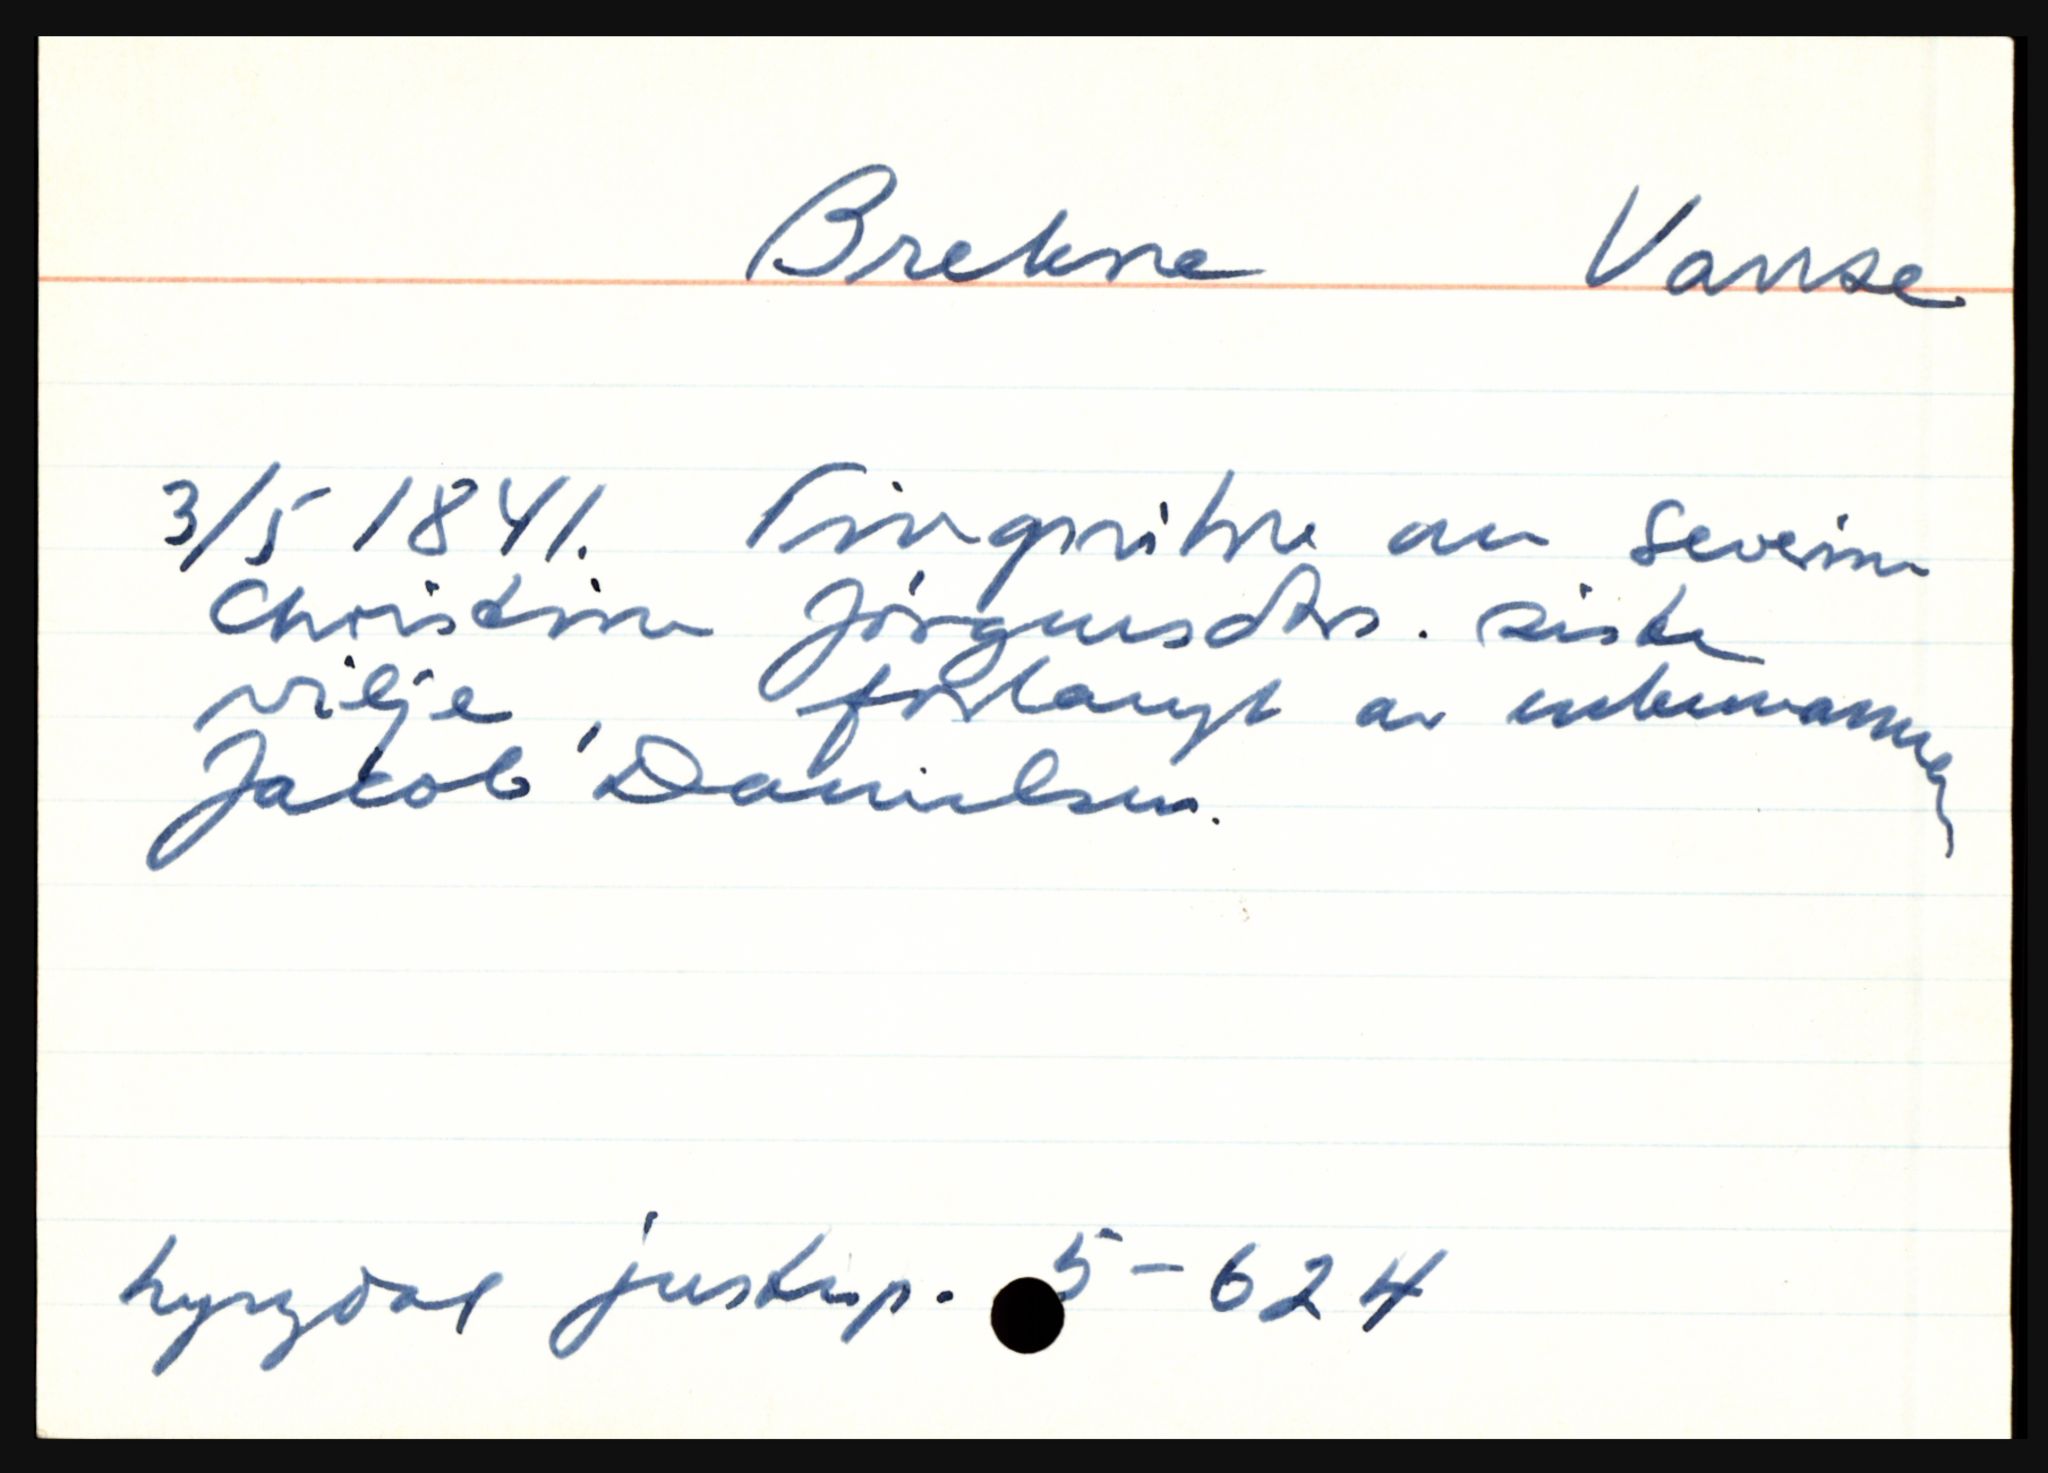 Brekne Vanse
3/5 1841. Tingsvitne om Severine
Christine Jörgensdtrs. siste
vilje, forlangt av enkemannen
Jacob Danielsen.
Lyngdal justisp. 5-624